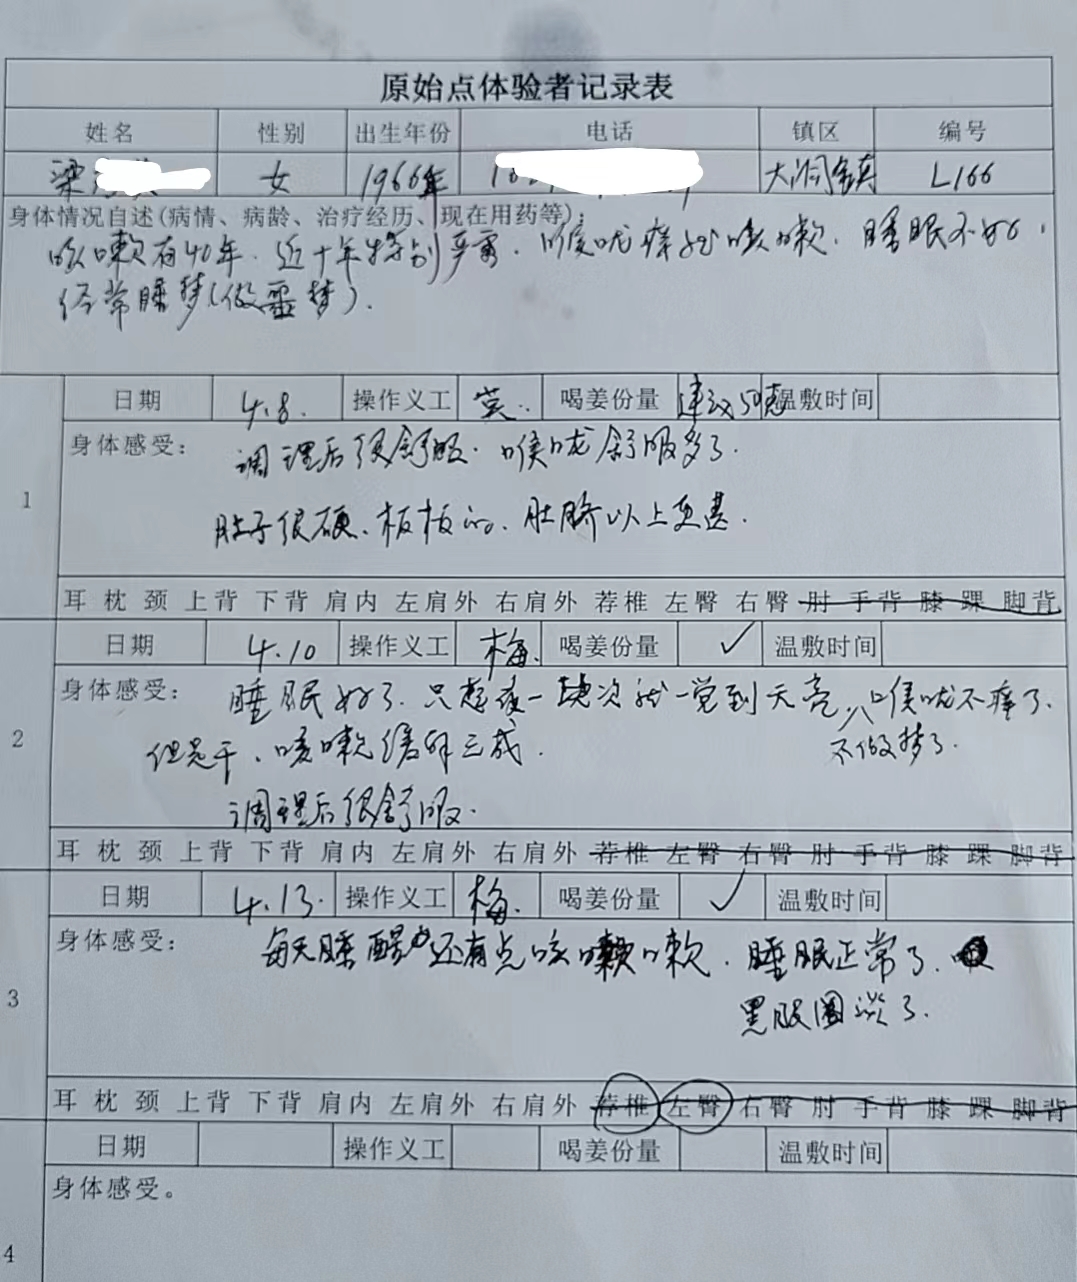 原始点体验者记录表
姓名 性别 出生年份 电话 镇区 编号
梁 女 1966年 大涧镇 L166
身体情况自述(病情、病龄、治疗经历、现在用药等)
咳嗽有40年.近十年特别严害.喉咙痒就咳嗽.睡眠不好,
经常睡梦(做噩梦).
1
日期 4.8. 操作义工 喝姜份量 建议 温敷时间
身体感受:
调理后很舒服.喉咙舒服多了.
肚子很硬、板板的、肚脐以上更甚.
耳 枕 颈 上背 下背 肩内 左肩外 右肩外 荐椎 左臀 右臀 肘 手背 膝 踝 脚背
2
日期 4.10 操作义工 梅. 喝姜份量 ✓ 温敷时间
身体感受: 睡眠好了.只起夜一次就一觉到天亮,喉咙不痒了.
不做梦了.
但是干、咳嗽缓解三成.
调理后很舒服.
耳 枕 颈 上背 下背 肩内 左肩外 右肩外 荐椎 左臀 右臀 肘 手背 膝 踝 脚背
3
日期 4.13. 操作义工 梅. 喝姜份量 ✓ 温敷时间
身体感受: 每天睡醒还有点咳嗽.睡眠正常了.
黑眼圈淡了.
耳 枕 颈 上背 下背 肩内 左肩外 右肩外 荐椎 左臀 右臀 肘 手背 膝 踝 脚背
4
日期 操作义工 喝姜份量 温敷时间
身体感受。